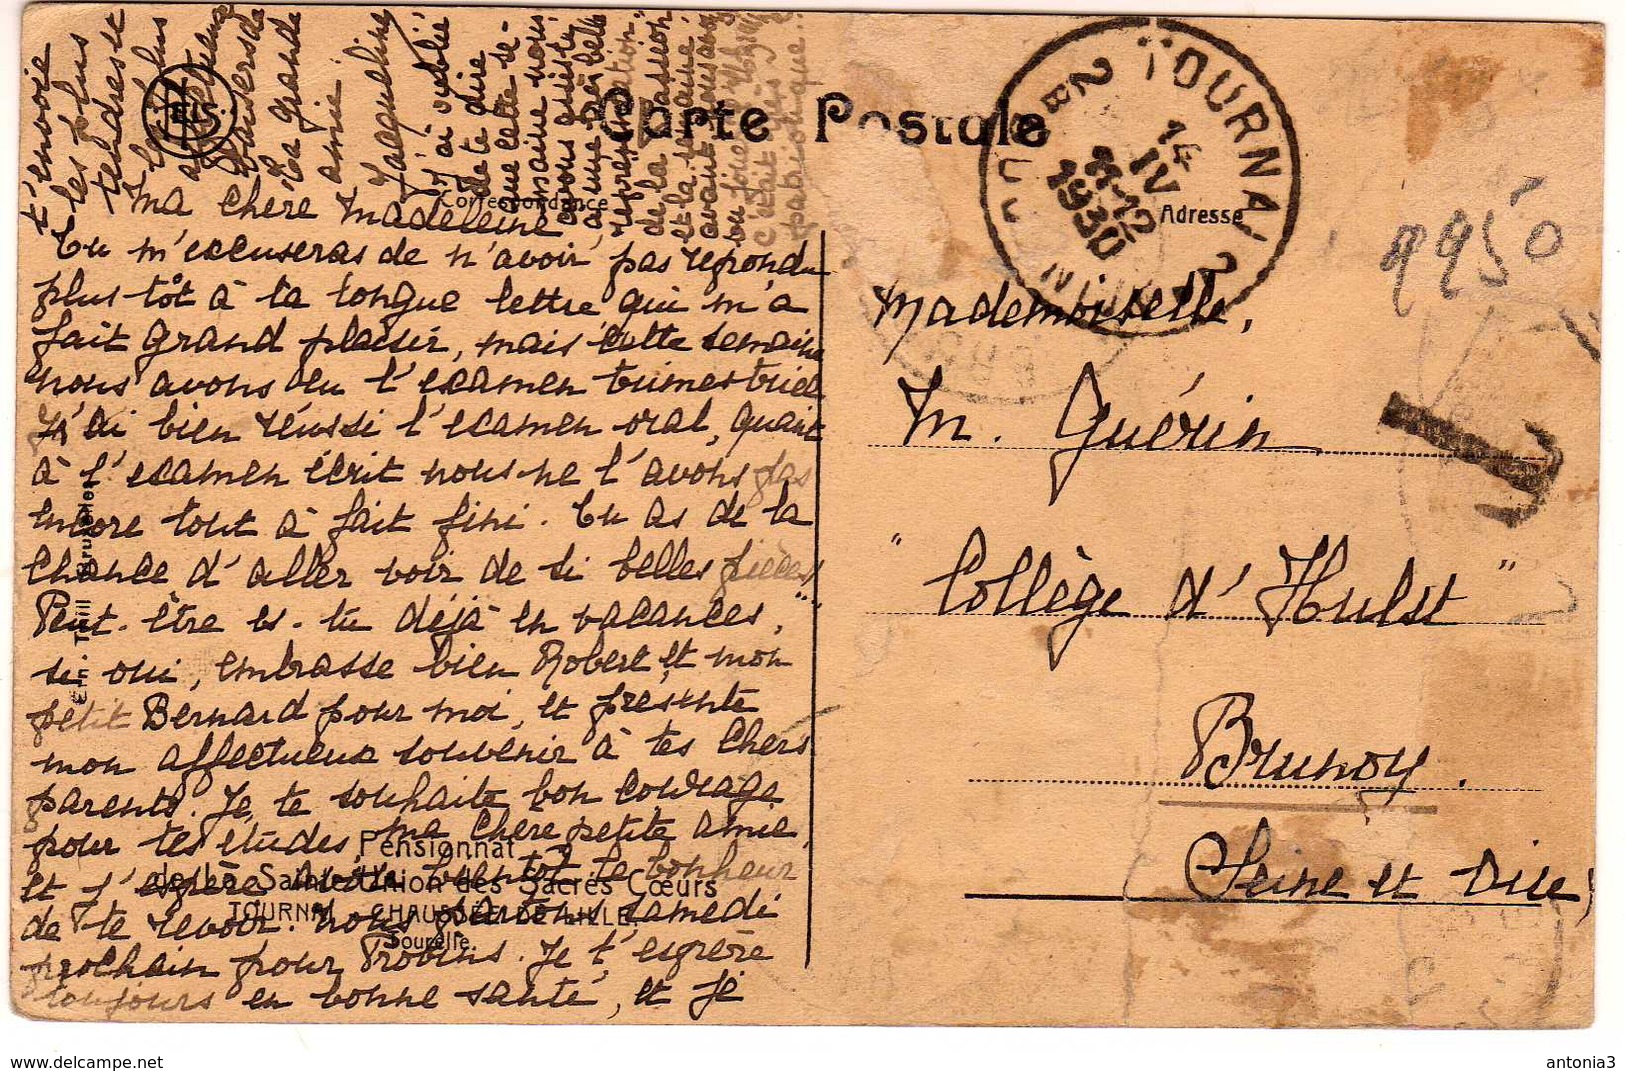 Carte Postale
Correspondance
Adresse
TOURNAI 2
14
IV
11-12
1930
Ma chère Madeleine
Tu m'excuseras de n'avoir pas répondu
plus tôt à ta longue lettre qui m'a
fait grand plaisir, mais cette semaine
nous avons eu l'examen trimestriel
J'ai bien réussi l'examen oral, quant
à l'examen écrit nous ne l'avons pas
encore tout à fait fini. Tu as de la
chance d'aller voir de si belles pièces
Peut-être es-tu déjà en vacances,
si oui, embrasse bien Robert et mon
petit Bernard pour moi, et présente
mon affectueux souvenir à tes chers
parents. Je te souhaite bon courage
pour tes études, ma chère petite amie,
et j'espère avoir bientôt le bonheur
de te revoir. Nous partons samedi
prochain pour Provins. Je t'espère
toujours en bonne santé, et je
t'envoie
les plus
tendres et
les plus
affectueux
baisers de
Ta grande
amie
Jacqueline
J'ai oublié
de te dire
que cette se-
maine nous
avons assisté
à une très belle
représentation
de la Passion
et la semaine
avant nous avons
vu Jeanne d'Arc
C'était très
patriotique.
Pensionnat
de la Sainte-Union des Sacrés Cœurs
TOURNAI - CHAUSSÉE DE LILLE.
Tourelle.
Ern. Thill Bruxelles
9950
T
Mademoiselle,
M. Guérin
"Collège d'Hulst"
Brunoy.
Seine et Oise
www.delcampe.net
antonia3